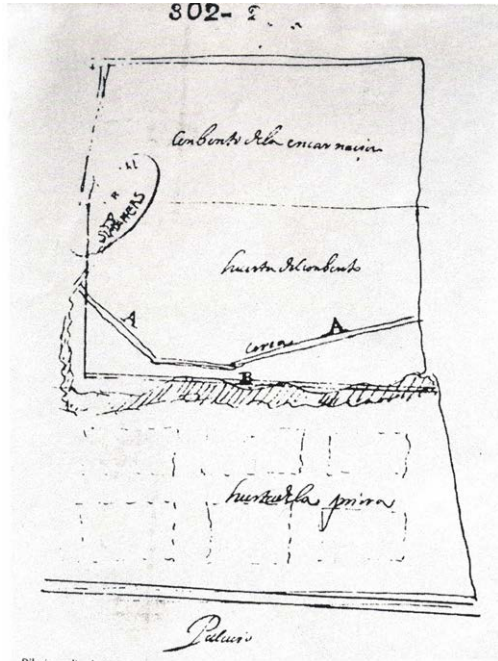 302-
Conbento de la encarnacion
huerta del conbento
A
A
cerca
B
huerta de la priora
Palacio